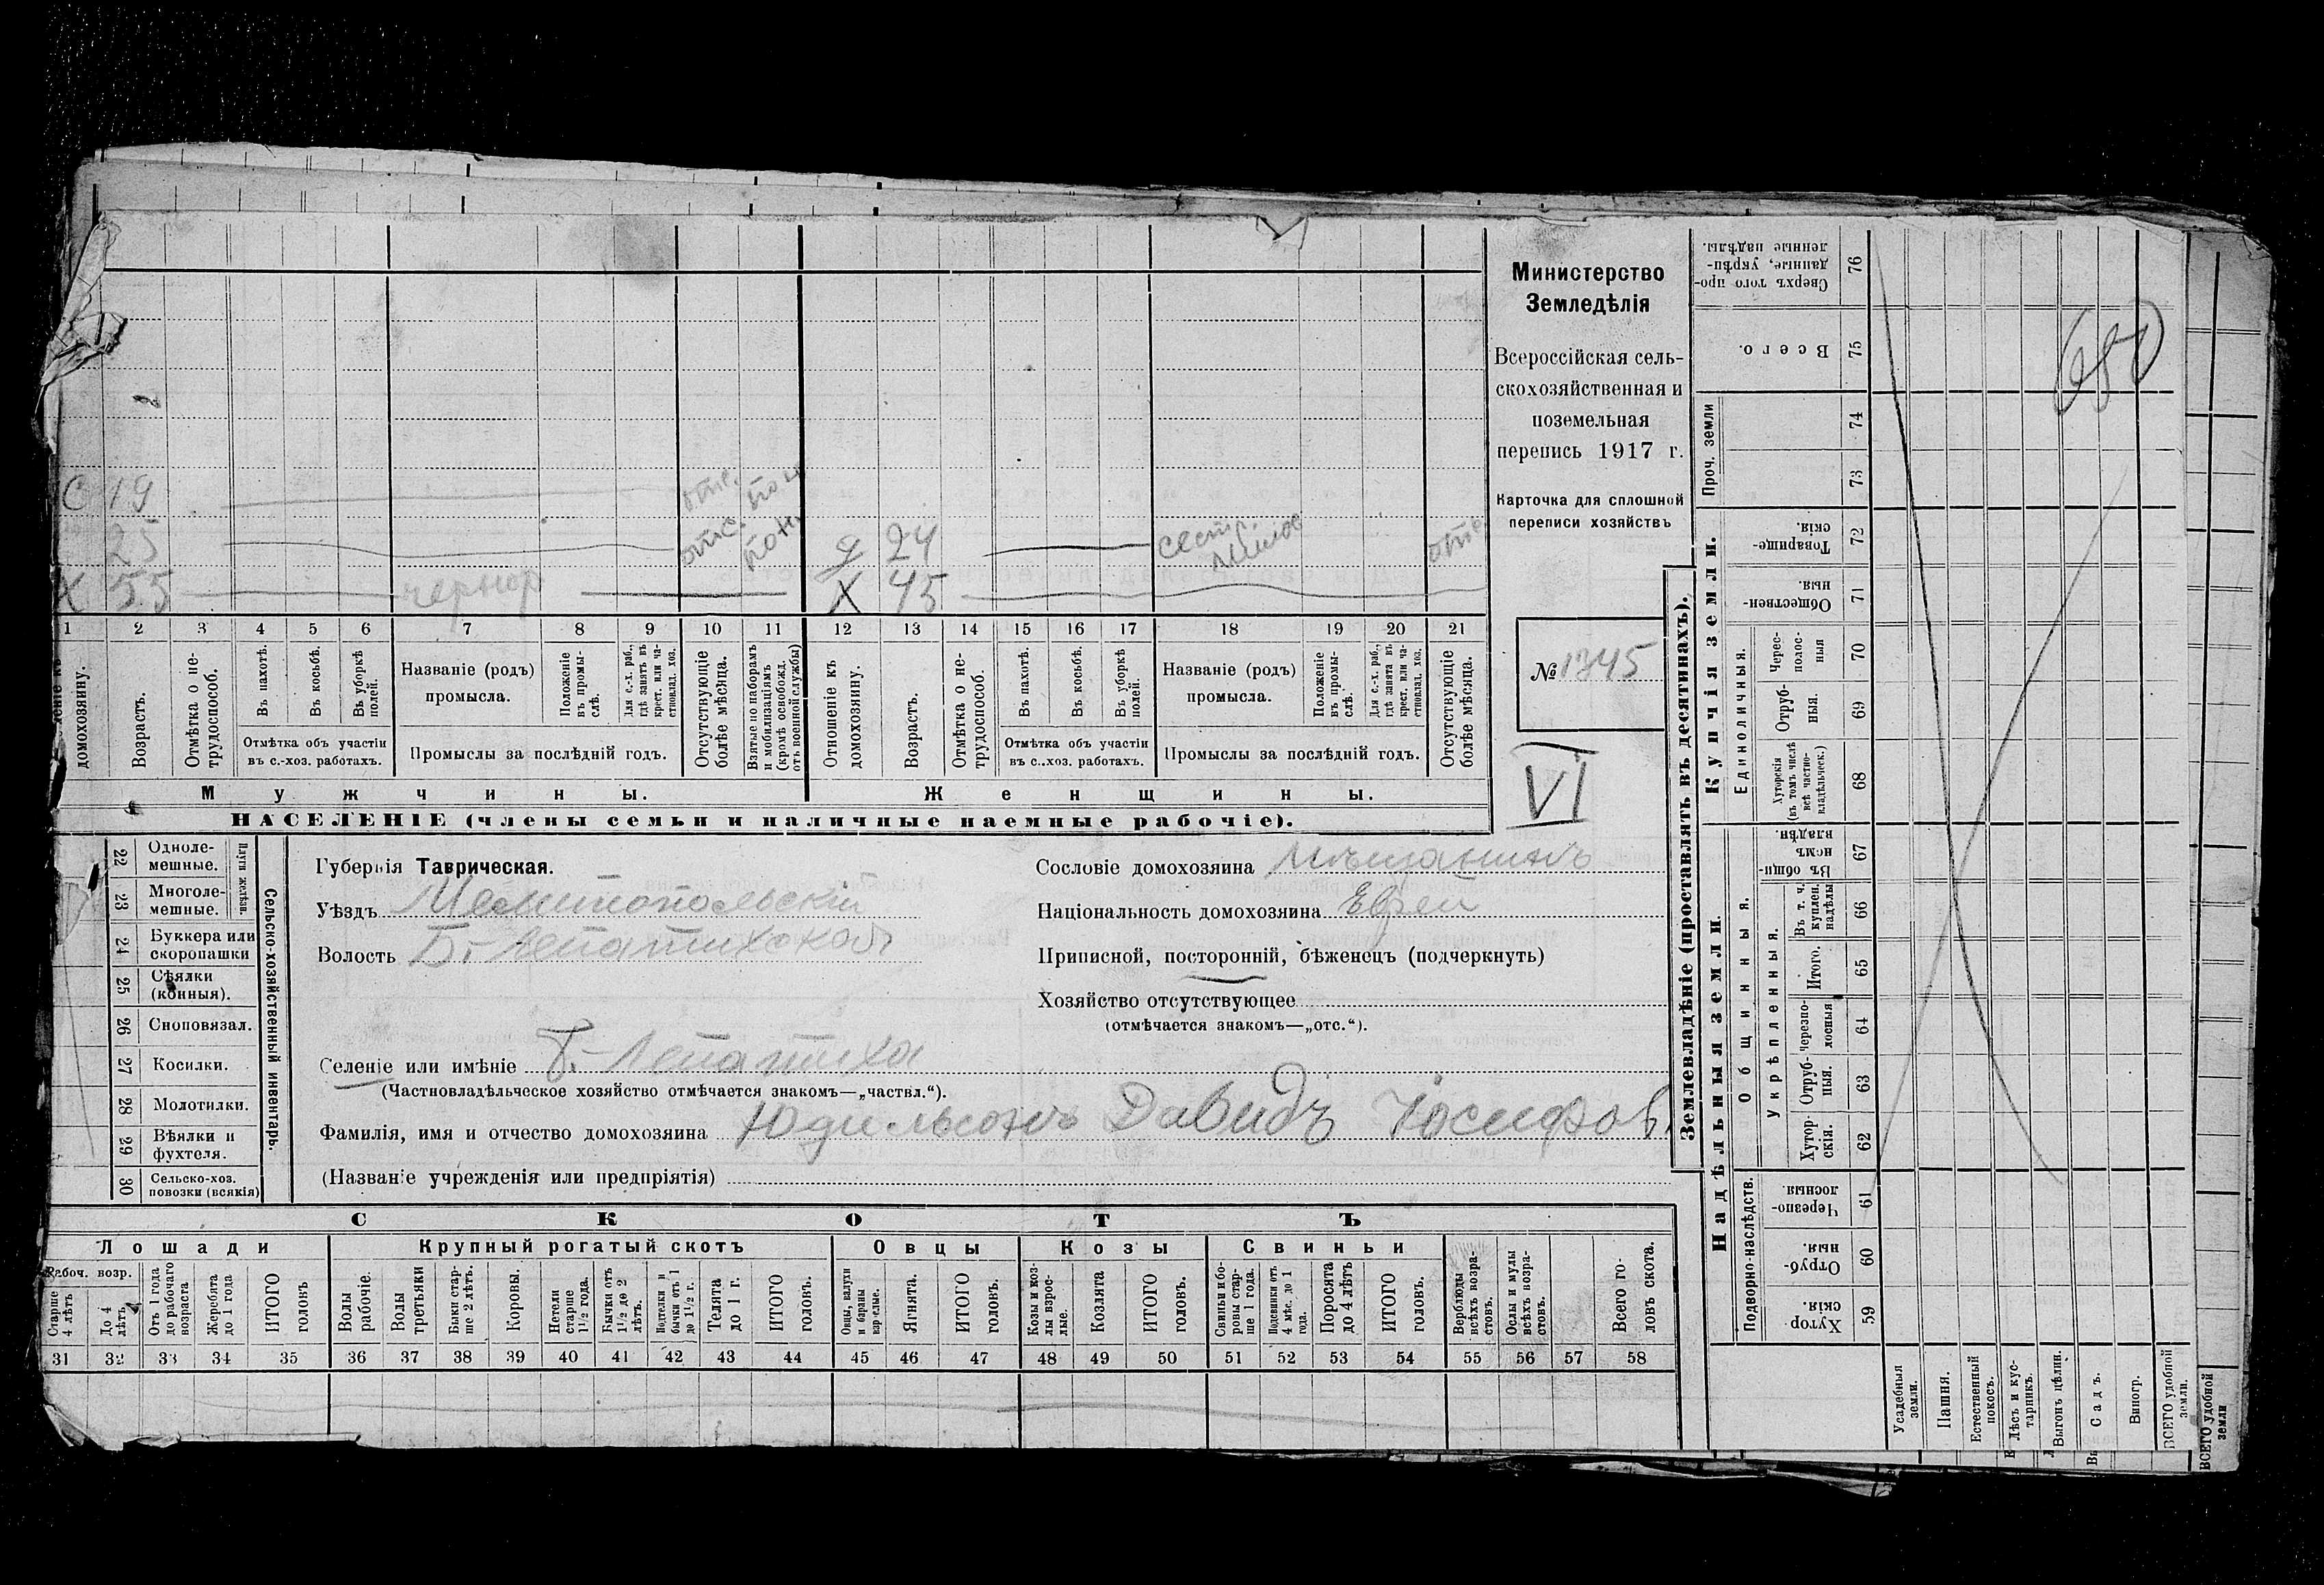 С 19 отс. пов.
25 отс. пон. Д 24 сестр. милос отс.
Х 55 чернор Х 45
1 2 3 4 5 6 7 8 9 10 11 12 13 14 15 16 17 18 19 20 21
домохозяину.
Возрастъ.
Отмѣтка о не-
трудоспособ.
Въ пахотѣ.
Въ косьбѣ.
Въ уборкѣ
полей.
Отмѣтка объ участіи
въ с.-хоз. работахъ.
Названіе (родъ)
промысла.
Положеніе
въ промы-
слѣ.
Для с.-х. раб.,
гдѣ занятъ въ
крест. или ча-
стновлад. хоз.
Промыслы за послѣдній годъ.
Отсутствующіе
болѣе мѣсяца.
Взятые по наборамъ
и мобилизаціямъ
(кромѣ освобожд.
отъ военной службы)
Отношеніе къ
домохозяину.
Возрастъ.
Отмѣтка о не-
трудоспособ.
Въ пахотѣ.
Въ косьбѣ.
Въ уборкѣ
полей.
Отмѣтка объ участіи
въ с..хоз. работахъ.
Названіе (родъ)
промысла.
Положеніе
въ промы-
слѣ.
Для с.-х. раб.,
гдѣ занята въ
крест. или ча-
стновлад. хоз.
Промыслы за послѣдній годъ.
Отсутствующіе
болѣе мѣсяца.
Мужчины.
Женщины.
НАСЕЛЕНІЕ (члены семьи и наличные наемные рабочіе).
Министерство
Земледѣлія
Всероссійская сель-
скохозяйственная и
поземельная
перепись 1917 г.
Карточка для сплошной
переписи хозяйствъ
№ 1345
VI
22 Одноле-
мешные.
23 Многоле-
мешные.
Плуги желѣзн.
24 Буккера или
скоропашки
25 Сѣялки
(конныя).
26 Сноповязал.
27 Косилки.
28 Молотилки.
29 Вѣялки и
фухтеля.
30 Сельско-хоз.
повозки (всякія)
Сельско-хозяйственный инвентарь.
Губернія Таврическая.
Уѣздъ Мелитопольскій
Волость Б. Лепатихской
Селеніе или имѣніе Б.-Лепатиха
(Частновладѣльческое хозяйство отмѣчается знакомъ—„частвл.“).
Фамилія, имя и отчество домохозяина Юдильсонъ Давидъ Іосифов.
(Названіе учрежденія или предпріятія)
Сословіе домохозяина Мѣщанинъ
Національность домохозяина Еврей
Приписной, посторонній, бѣженецъ (подчеркнуть)
Хозяйство отсутствующее
(отмѣчается знакомъ—„отс.“).
СКОТЪ
Лошади
Крупный рогатый скотъ
Овцы
Козы
Свиньи
Рабоч. возр.
Старше
4 лѣтъ
До 4
лѣтъ
Отъ 1 года
до рабочаго
возраста
Жеребята
до 1 года
ИТОГО
головъ
Волы
рабочіе.
Волы
третьяки
Быки стар-
ше 2 лѣтъ.
Коровы.
Нетели
старше
1½ года.
Бычки отъ
1½ до 2
лѣтъ.
Подтелки и
бычки отъ 1
до 1½ г.
Телята
до 1 г.
ИТОГО
головъ.
Овцы, валухи
и бараны
взрослые.
Ягнята.
ИТОГО
головъ.
Козы и коз-
лы взрос-
лые.
Козлята
ИТОГО
головъ.
Свиньи и бо-
ровы стар-
ше 1 года.
Подсвинки отъ
4 мѣс. до 1
года.
Поросята
до 4 лѣтъ
ИТОГО
головъ.
Верблюды
всѣхъ возра-
стовъ.
Ослы и мулы
всѣхъ возра-
стовъ.
Всего го-
ловъ скота.
31 32 33 34 35 36 37 38 39 40 41 42 43 44 45 46 47 48 49 50 51 52 53 54 55 56 57 58
Землевладѣніе (проставлять въ десятинахъ).
Сверхъ того про-
данные, укрѣп-
ленные надѣлы.
76
Всего.
75
Проч. земли
74
73
Купчія земли.
Товарище-
скія.
72
Обществен-
ныя
71
Единоличныя.
Черес-
полос-
ныя
70
Отруб-
ныя.
69
Хуторскія
(въ томъ числѣ
всѣ частно-
владѣльческ.)
68
Надѣльныя земли.
Общинныя.
Въ общин-
номъ
владѣн.
67
Укрѣпленныя.
Въ т. ч.
куплен.
надѣлы
66
Итого.
65
Черезпо-
лосныя
64
Отруб-
ныя.
63
Хутор-
скія.
62
Подворно-наслѣдств.
Черезпо-
лосныя
61
Отруб-
ныя
60
Хутор-
скія.
59
Усадебныя
земли.
Пашня.
Естественный
покосъ.
Лѣсъ и кус-
тарникъ.
Выгонъ цѣлин.
Садъ.
Виногр.
ВСЕГО удобной
земли.
ВСЕГО удобной
земли